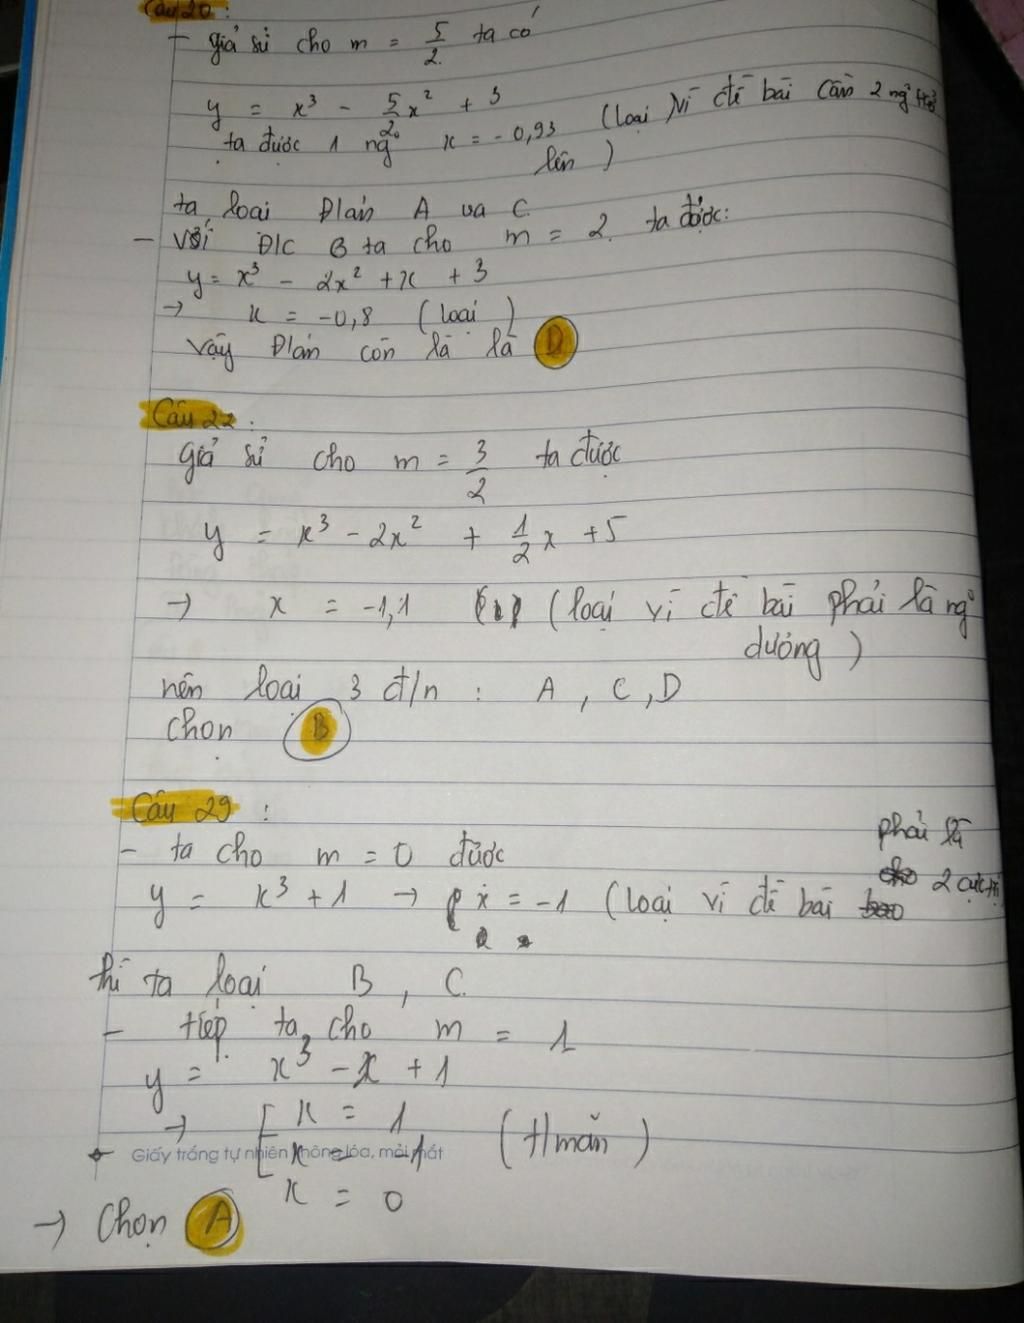 Câu 20 :
- giả sử cho m = 5/2 ta có
y = x³ - 5/2 x² + 3
ta được 1 ng⁰ x = -0,93 (loại) vì đề bài cần 2 ng⁰ trở
lên )
ta loại Đ/án A và C.
- Với Đ/C B ta cho m = 2. ta được:
y = x³ - 2x² + x + 3
→ x = -0,8 (loại)
vậy Đ/án còn lã là D
Câu 22 :
giả sử cho m = 3/2 ta được
y = x³ - 2x² + 1/2 x + 5
→ x = -1,1 (loại vì đề bài phải là ng⁰
dương )
nên loại 3 đ/n : A , C , D
chọn B
Câu 29 :
- ta cho m = 0 được
phải là
y = x³ + 1 → x = -1 (loại vì đề bài 2 cực trị
thì ta loại B , C.
- tiếp ta cho m = 1
y = x³ - x + 1
→ [ x = 1
x = -1 (t/mãn)
Giấy trắng tự nhiên không lóa, mỏi mắt
x = 0
→ Chọn A